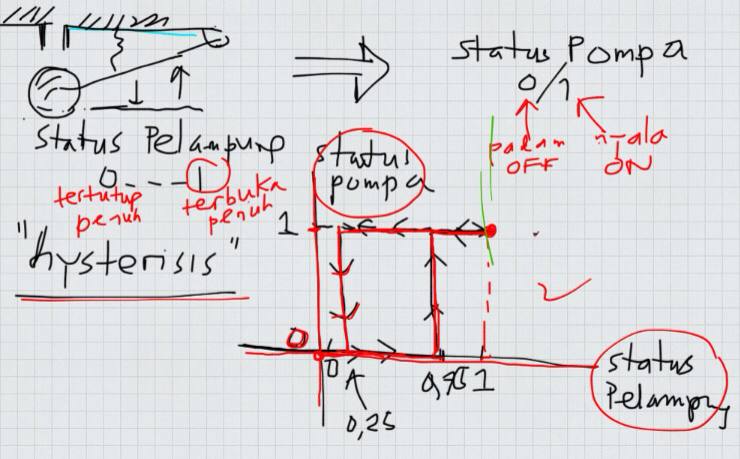 Status Pompa
0/1
padam
OFF
nyala
ON
Status Pelampung
0---1
tertutup
penuh
terbuka
penuh
"hysterisis"
status
pompa
1
0
0
1
0,25
status
Pelampung